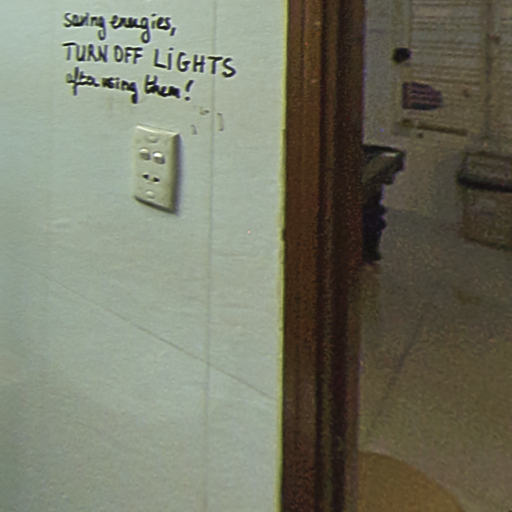 saving energies,
TURN OFF LiGHTS
after using them!